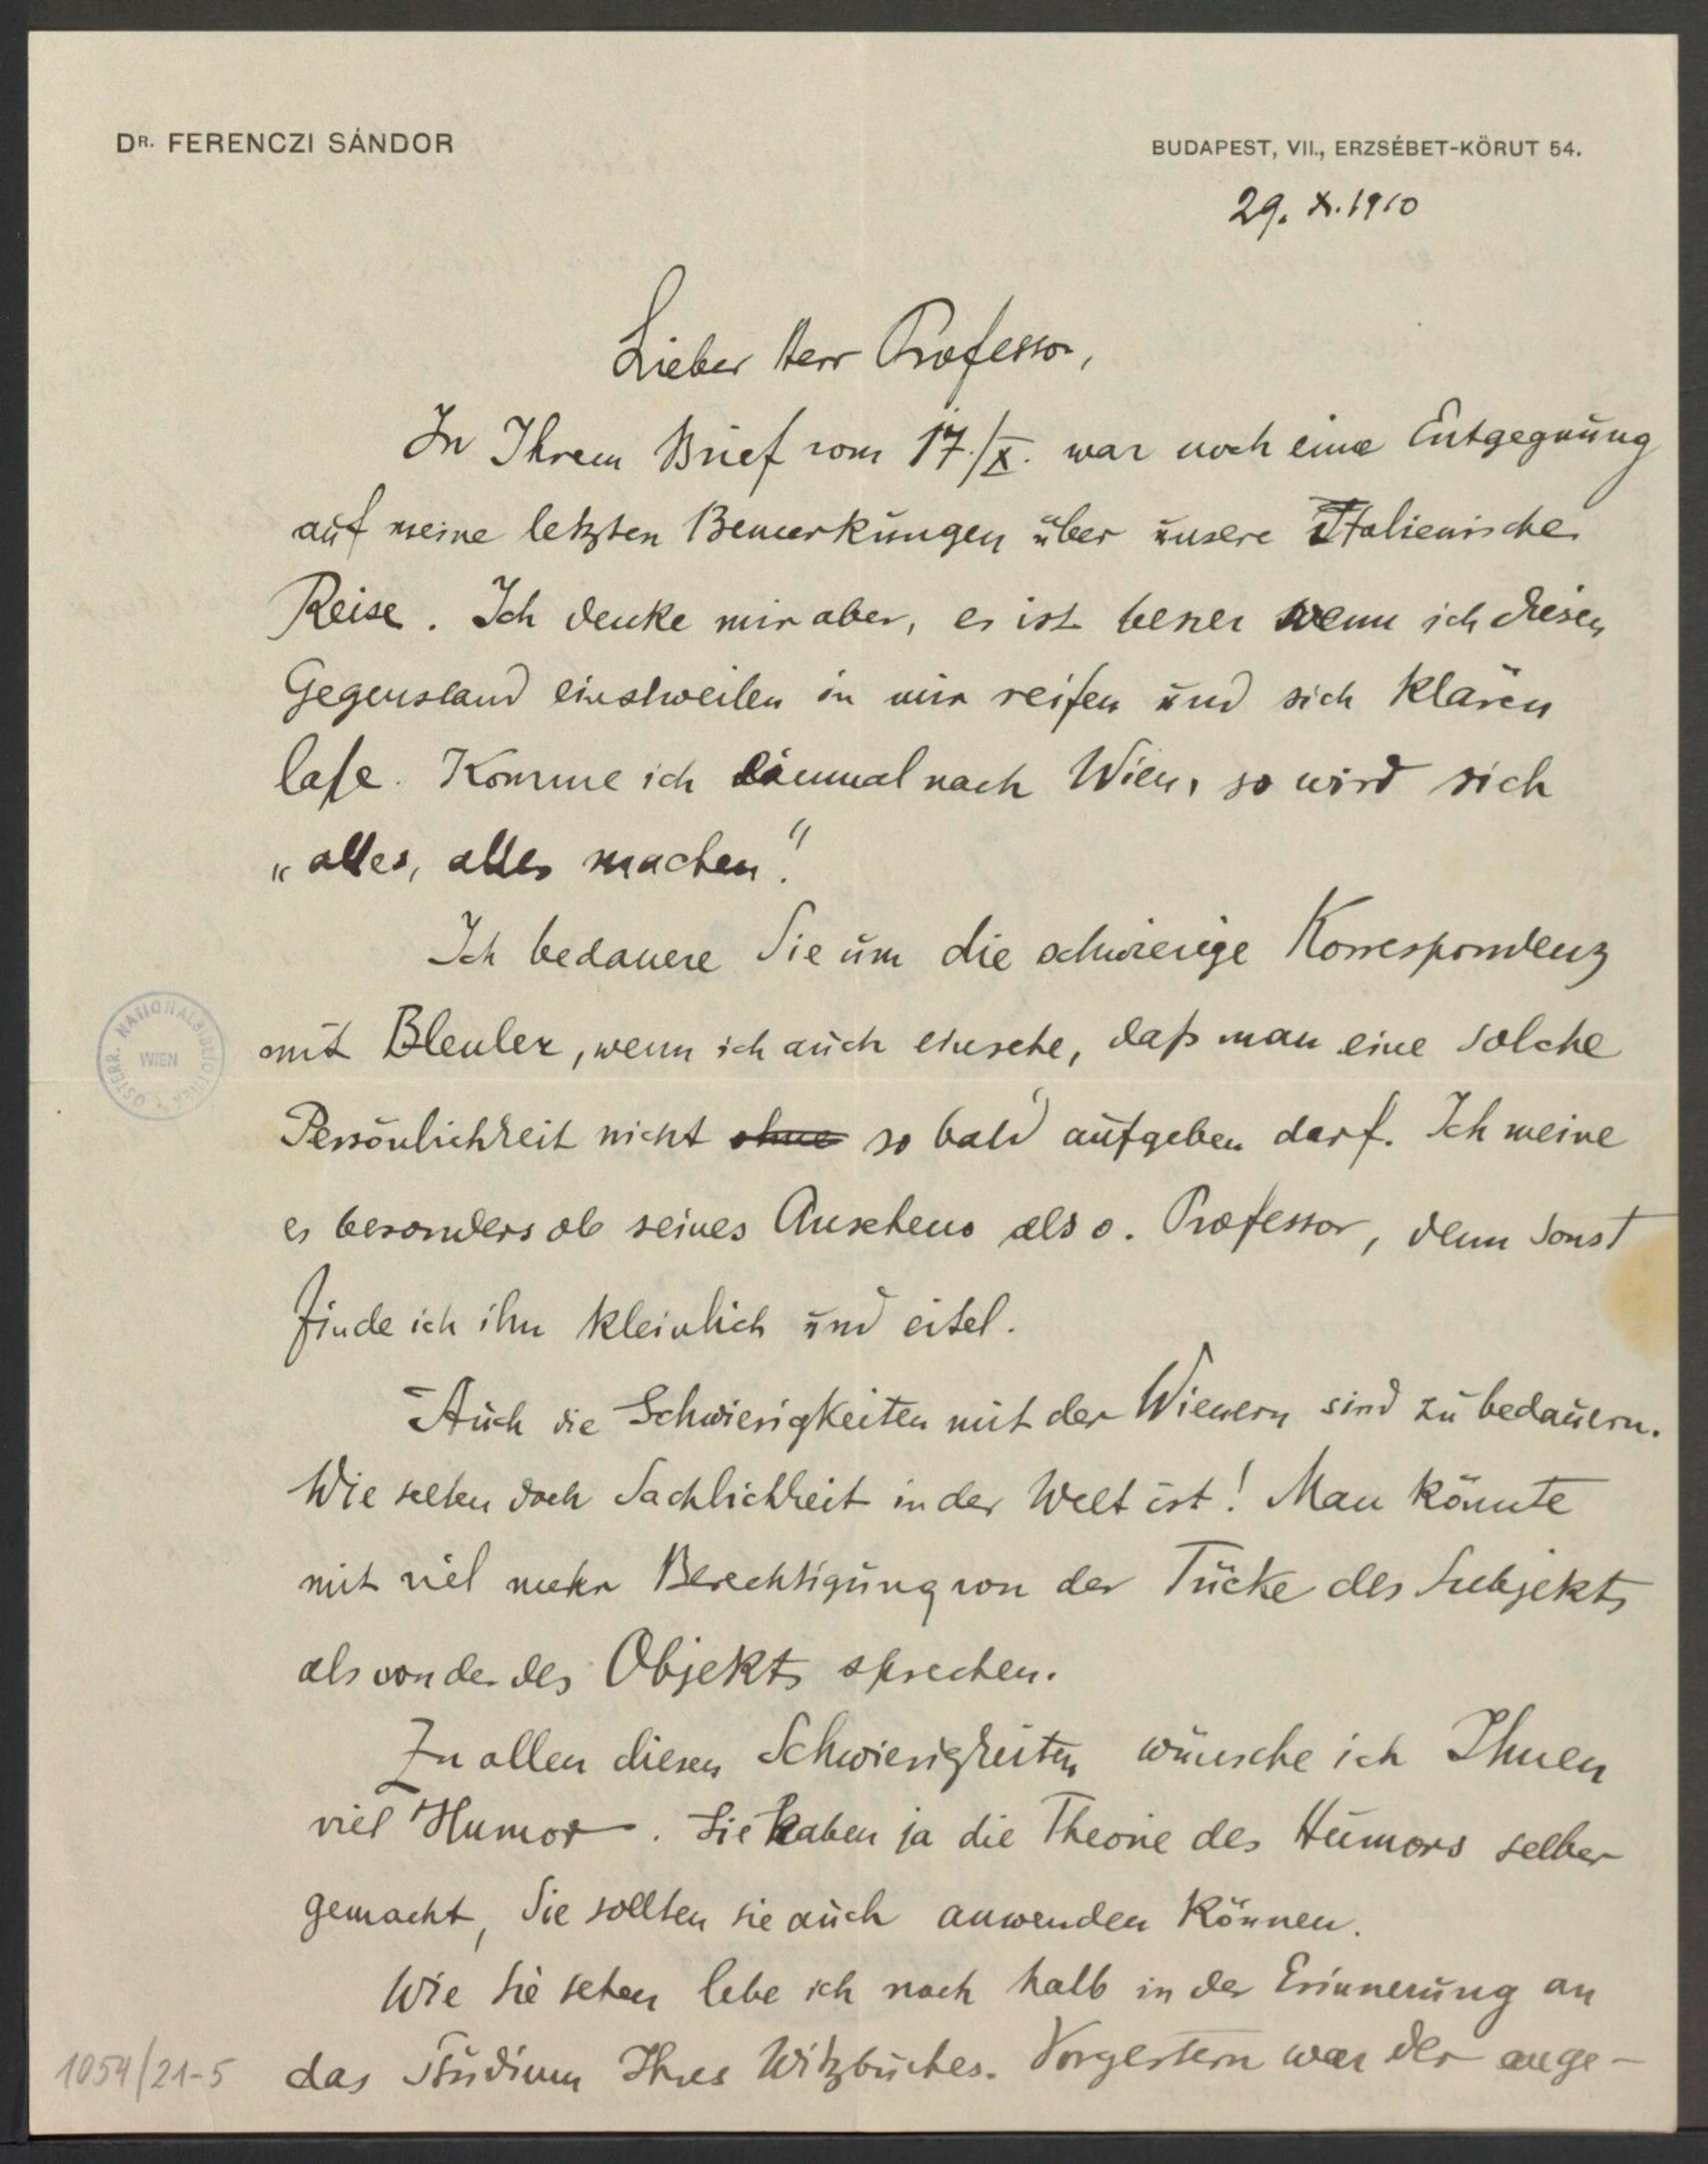 DR. FERENCZI SÁNDOR
BUDAPEST, VII., ERZSÉBET-KÖRUT 54.
29. X. 1910
Lieber Herr Professor,
In Ihrem Brief vom 17./X. war noch eine Entgegnung
auf meine letzten Bemerkungen über unsere Italienische
Reise. Ich denke mir aber, es ist besser wenn ich diesen
Gegenstand einstweilen in mir reifen und sich klären
lasse. Komme ich einmal nach Wien, so wird sich
„alles, alles machen“.
Ich bedauere Sie um die schwierige Korrespondenz
mit Bleuler, wenn ich auch einsehe, daß man eine solche
Persönlichkeit nicht ohne so bald aufgeben darf. Ich meine
es besonders ob seines Ansehens als o. Professor, denn sonst
finde ich ihn kleinlich und eitel.
Auch die Schwierigkeiten mit den Wienern sind zu bedauern.
Wie selten doch Sachlichkeit in der Welt ist! Man könnte
mit viel mehr Berechtigung von der Tücke des Subjekts
als von der des Objekts sprechen.
Zu allen diesen Schwierigkeiten wünsche ich Ihnen
viel Humor. Sie haben ja die Theorie des Humors selber
gemacht, Sie sollten sie auch anwenden können.
Wie Sie sehen lebe ich noch halb in der Erinnerung an
das Studium Ihres Witzbuches. Vorgestern war der ange-
1054/21-5
ÖSTERR. NATIONALBIBLIOTHEK
WIEN